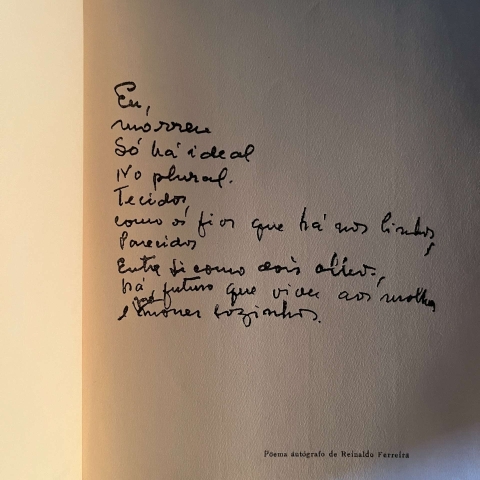 Eu,
morreu
Só há ideal
No plural.
Tecidos,
como os fios que há nos linhos,
Parecidos
Entre si como dois
há futuro que viver aos molhos
e morrer sozinhos.
Poema autógrafo de Reinaldo Ferreira